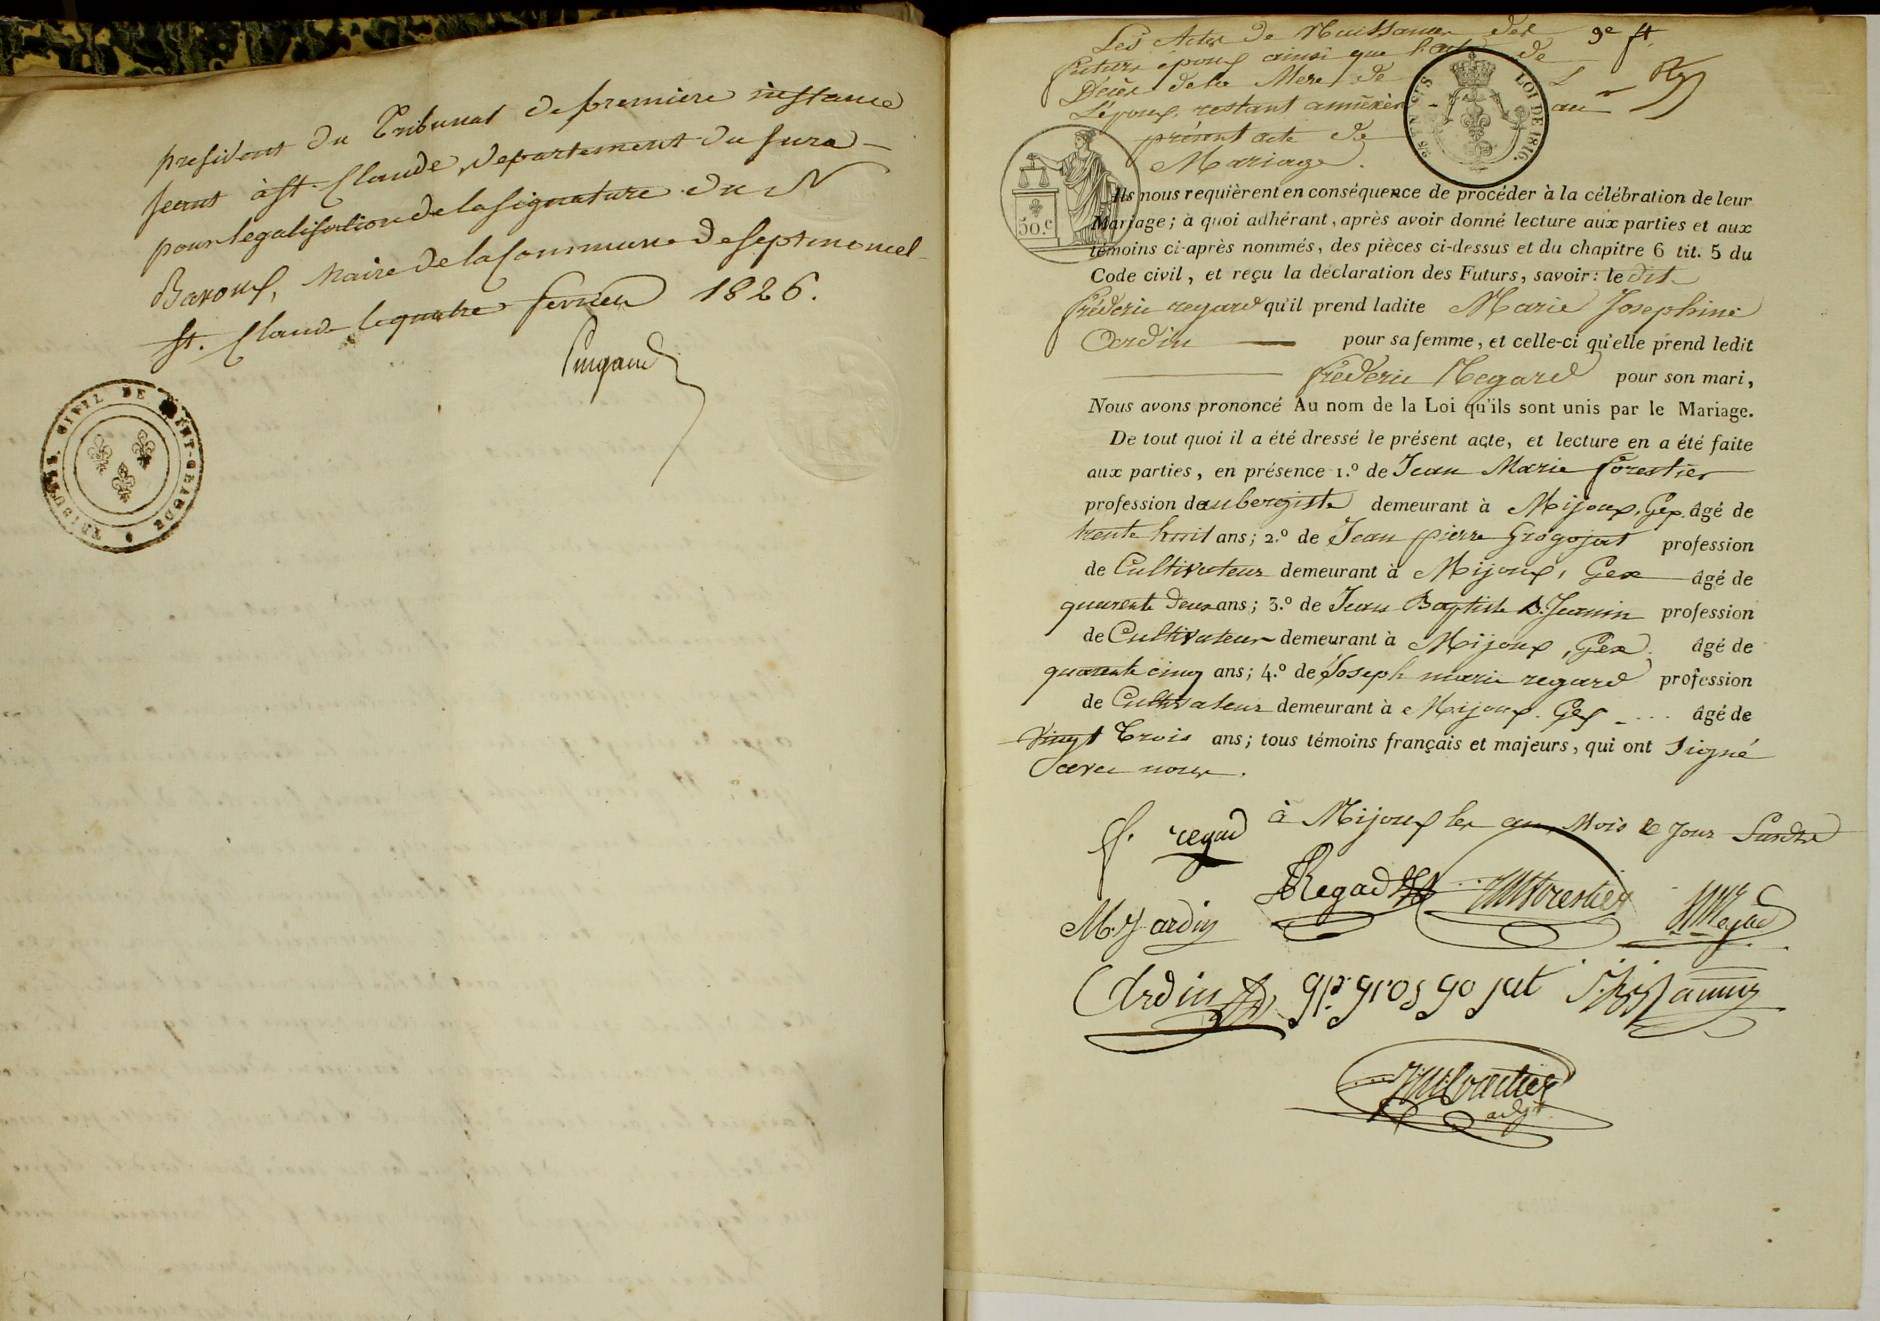 president du Tribunal de premiere instance
seant à St. Claude, departement du Jura
pour legalisation de la signature du Sr
Baroux, Maire de la Commune de Septmoncel
St. Claude le quatre fevrier 1826.
TRIBUNAL CIVIL DE SAINT-CLAUDE
Les Actes de Naissances des 9e ft.
futurs époux ainsi que l'acte de
Décès de la Mere de
L'époux, restant annéxés au
présent acte de
Mariage.
LOI DE 1816.
50.c
Ils nous requièrent en conséquence de procéder à la célébration de leur
Mariage; à quoi adhérant, après avoir donné lecture aux parties et aux
témoins ci-après nommés, des pièces ci-dessus et du chapitre 6 tit. 5 du
Code civil, et reçu la déclaration des Futurs, savoir: le dit
fréderic regard qu'il prend ladite Marie Josephine
Cardin pour sa femme, et celle-ci qu'elle prend ledit
frederic Regard pour son mari,
Nous avons prononcé Au nom de la Loi qu'ils sont unis par le Mariage.
De tout quoi il a été dressé le présent acte, et lecture en a été faite
aux parties, en présence 1.º de Jean Marie forestier
profession daubergiste demeurant à Mijoux, Gex. âgé de
trente huit ans; 2.º de Jean pierre Grogojat profession
de Cultivateur demeurant à Mijoux, Gex âgé de
quarente deux ans; 3.º de Jean Baptiste B. Jeannin profession
de Cultivateur demeurant à Mijoux, Gex. âgé de
quarente cinq ans; 4.º de Joseph marie regard profession
de Cultivateur demeurant à Mijoux. Gex âgé de
Vingt Trois ans; tous témoins français et majeurs, qui ont signé
avec nous.
à Mijoux les an, Mois & Jour Susdts
f. regad
Regad JMForestier JMRegad
M.J. ardin
Cardin gp. gros go jat
JMForestier
adjt